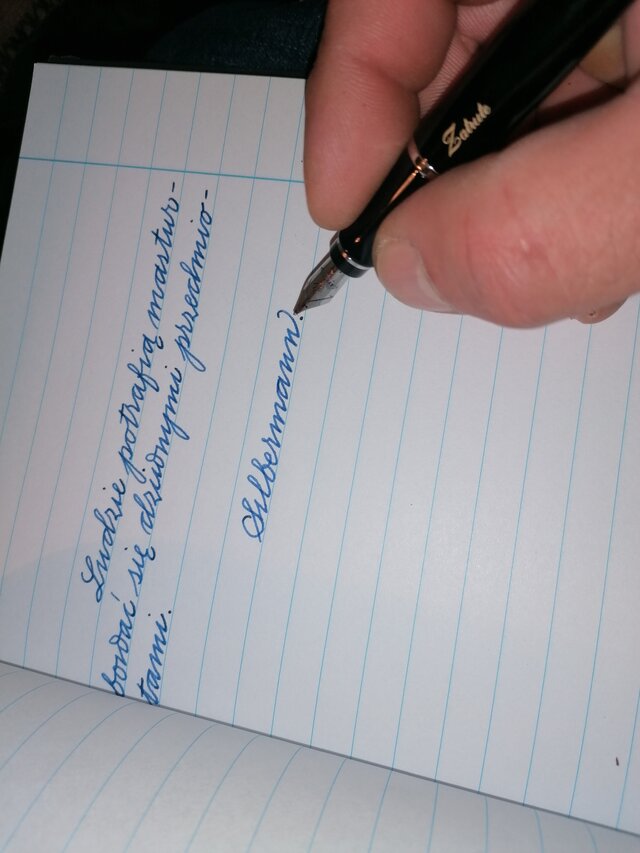 Ludzie potrafią mastur-
bować się dziwnymi przedmio-
tami.
Silbermann.
Zabuk